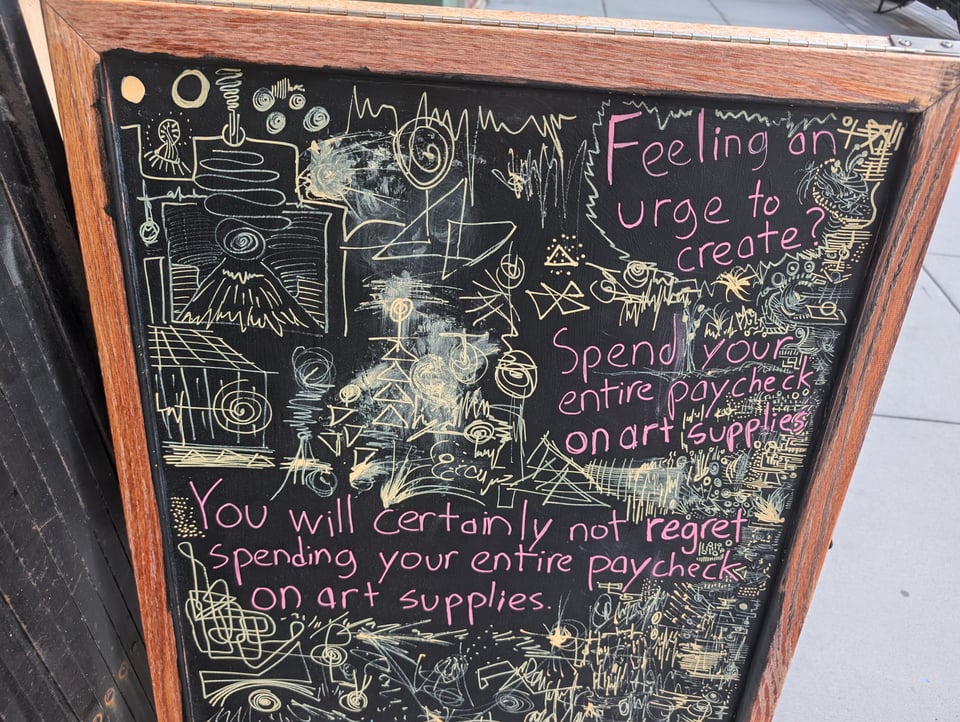 Feeling an
urge to
create?
Spend your
entire paycheck
on art supplies
You will certainly not regret
spending your entire paycheck
on art supplies.